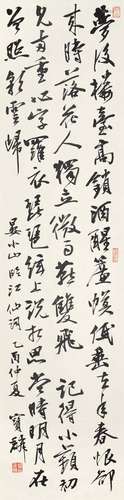 夢後樓臺高鎖酒醒簾幕低垂去年春恨卻
來時落花人獨立微雨燕雙飛 記得小蘋初
見兩重心字羅衣琵琶弦上說相思當時明月在
曾照彩雲歸
晏小山臨江仙詞 乙酉仲夏